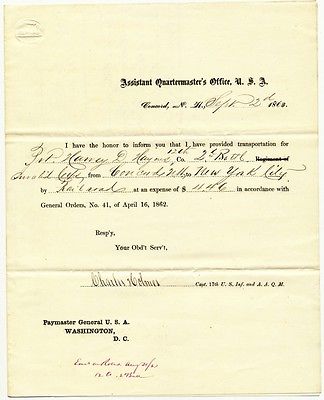 Assistant Quartermaster's Office, U. S. A.
Concord, N. H., Sept 2d 1863.
I have the honor to inform you that I have provided transportation for
Pvt. Harvey D. 12th Co. 2d Batt. Regiment of
Invalid Corps from Concord N.H. to New York City
by Railroads at an expense of $ 4.46 in accordance with
General Orders, No. 41, of April 16, 1862.
Resp'y,
Your Obd't Serv't,
Charles Holmes Capt. 17th U. S. Inf. and A. A. Q. M.
Paymaster General U. S. A.
WASHINGTON,
D. C.